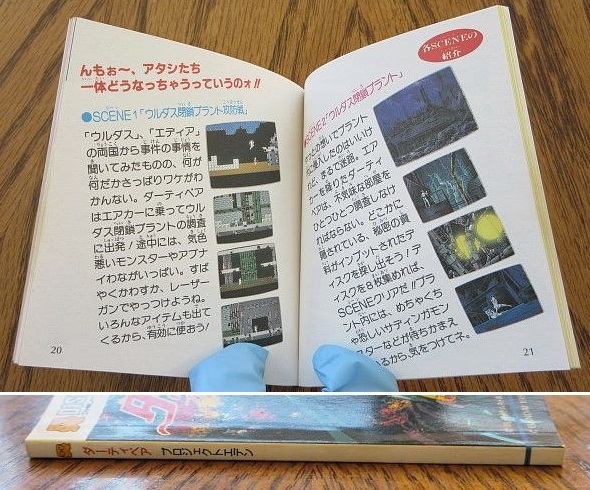 んもぉ〜、アタシたち
一体どうなっちゃうっていうのォ!!
●SCENE1「ウルダス閉鎖プラント攻防戦」
「ウルダス」、「エディア」
の両国から事件の事情を
聞いてみたものの、何が
何だかさっぱりワケがわ
かんない。ダーティペア
はエアカーに乗ってウル
ダス閉鎖プラントの調査
に出発！途中には、気色
悪いモンスターやアブナ
イわながいっぱい。すば
やくかわすか、レーザー
ガンでやっつけようね。
いろんなアイテムも出て
くるから、有効に使おう！
20
各SCENEの
紹介
●SCENE2「ウルダス閉鎖プラント」
の想いでプラント
に潜入したのはいいけ
れど、まるで迷路。エア
カーを降りたダーティ
ペアは、不気味な部屋を
ひとつひとつ調査しなけ
ればならない。どこかに
隠されている、秘密の資
料がインプットされたデ
ィスクを探し出そう！デ
ィスクを8枚集めれば、
SCENEクリアだ!!プラ
ント内には、めちゃくち
ゃ恐しいサディンガモン
スターなどが待ちかまえ
ているから、気をつけてネ。
21
ダーティペア プロジェクトエデン